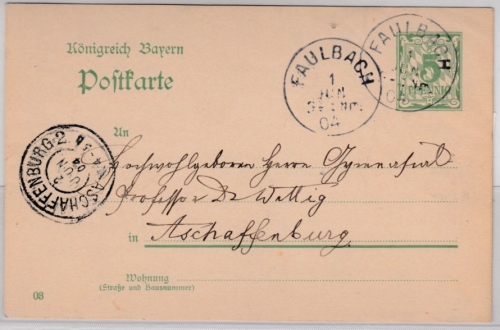 Königreich Bayern
Postkarte
FAULBACH
1
JUN
04
FAULBACH
JUN
5
PFENNIG
ASCHAFFENBURG 2
JUN
04
An
Hochwohlgeboren Herrn Gymnasial
Professor Dr
in Aschaffenburg.
Wohnung
(Straße und Hausnummer)
08